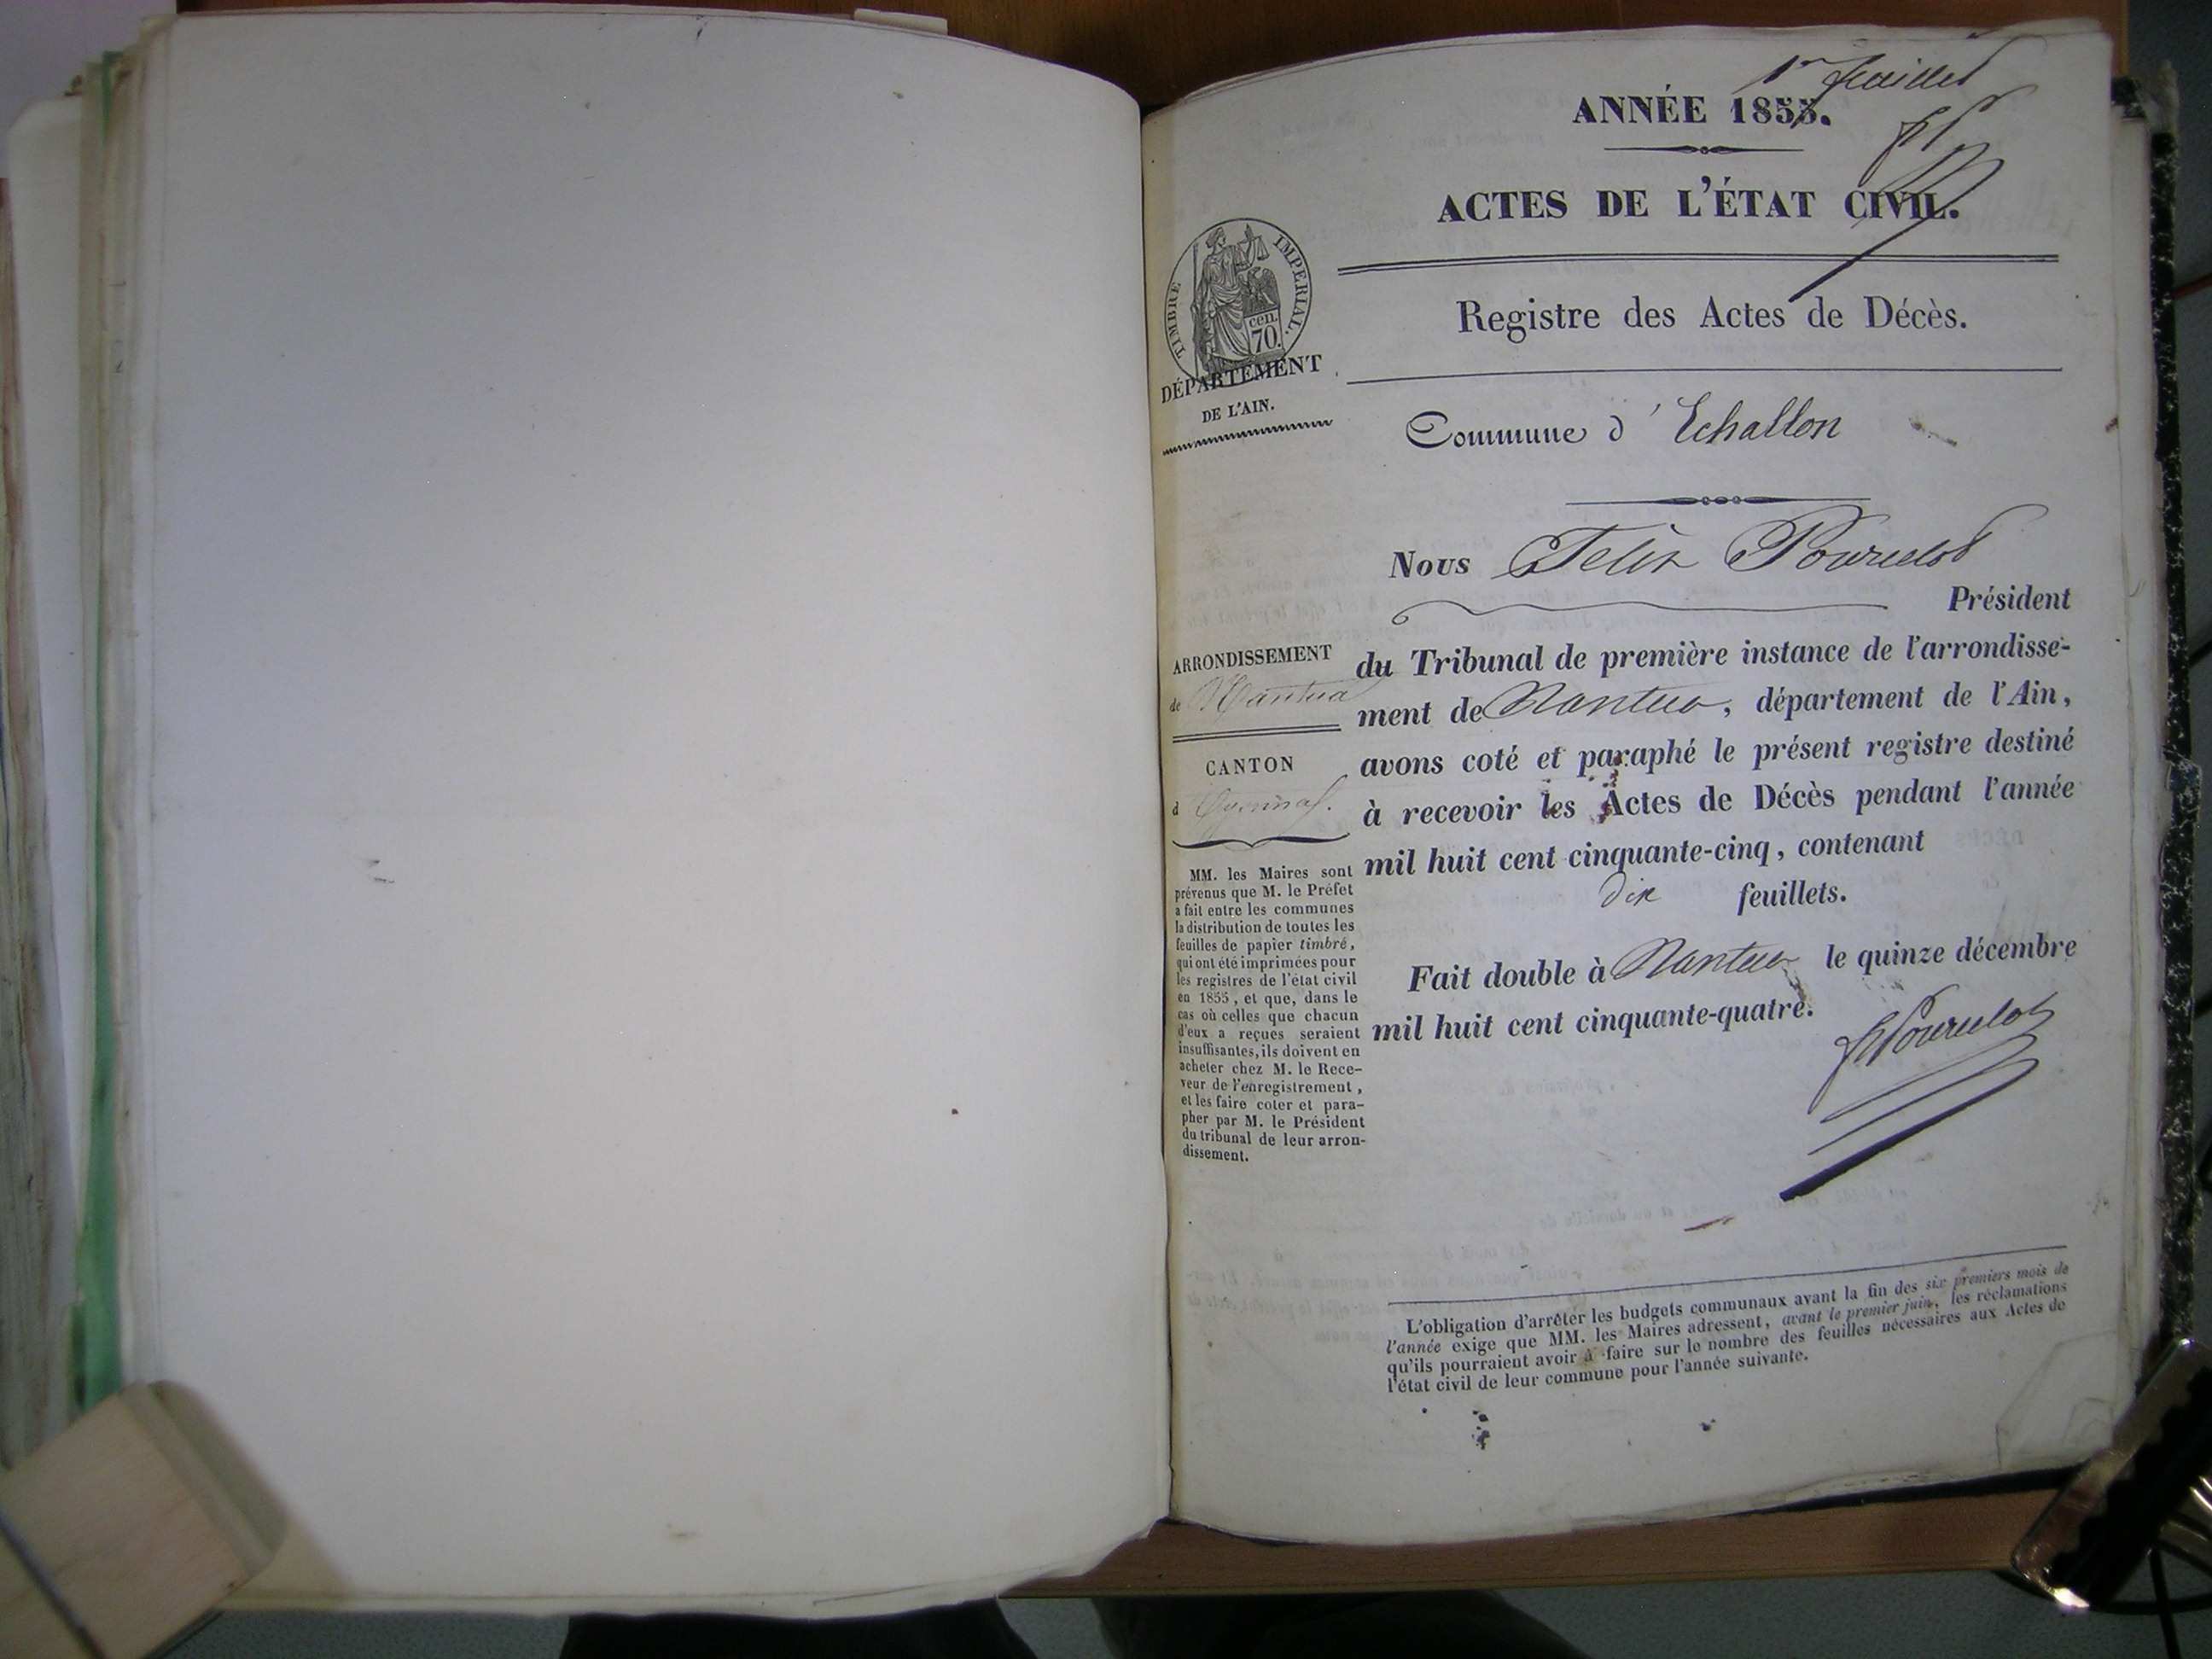 1er feuillet
ANNÉE 1855.
ACTES DE L'ÉTAT CIVIL.
TIMBRE IMPERIAL.
cen.
70.
DÉPARTEMENT
DE L'AIN.
Registre des Actes de Décès.
Commune d'Echallon
Nous Félix
Président
du Tribunal de première instance de l'arrondisse-
ment de Nantua, département de l'Ain,
avons coté et paraphé le présent registre destiné
à recevoir les Actes de Décès pendant l'année
mil huit cent cinquante-cinq, contenant
dix feuillets.
Fait double à Nantua le quinze décembre
mil huit cent cinquante-quatre.
ARRONDISSEMENT
de Nantua
CANTON
d'Oyonnax.
MM. les Maires sont
prévenus que M. le Préfet
a fait entre les communes
la distribution de toutes les
feuilles de papier timbré,
qui ont été imprimées pour
les registres de l'état civil
en 1855, et que, dans le
cas où celles que chacun
d'eux a reçues seraient
insuffisantes, ils doivent en
acheter chez M. le Rece-
veur de l'enregistrement,
et les faire coter et para-
pher par M. le Président
du tribunal de leur arron-
dissement.
L'obligation d'arrêter les budgets communaux avant la fin des six premiers mois de
l'année exige que MM. les Maires adressent, avant le premier juin, les réclamations
qu'ils pourraient avoir à faire sur le nombre des feuilles nécessaires aux Actes de
l'état civil de leur commune pour l'année suivante.